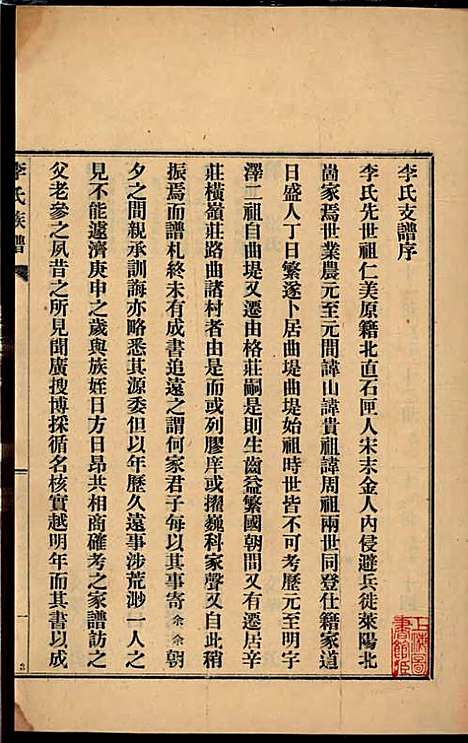 李氏支譜序
李氏先世祖仁美原籍北直石匣人宋末金人內侵避兵徙萊陽北
崮家焉世業農元至元間諱山諱貴祖諱周祖兩世同登仕籍家道
日盛人丁日繁遂卜居曲堤始祖時世皆不可考歷元至明字
澤二祖自曲堤又遷由格莊嗣是則生齒益繁國朝間又有遷居辛
莊橫嶺莊路曲諸村者由是或列膠庠或擢巍科家聲又自此稍
振焉而譜札終未有成書追遠之謂何家君子每以其事寄余余朝
夕之間親承訓誨亦略悉其源委但以年歷久遠事涉荒渺一人之
見不能遽濟庚申之歲與族姪日方日昂共相商確考之家譜訪之
父老參之夙昔之所見聞廣搜博採循名核實越明年而其書以成
李氏族譜
一